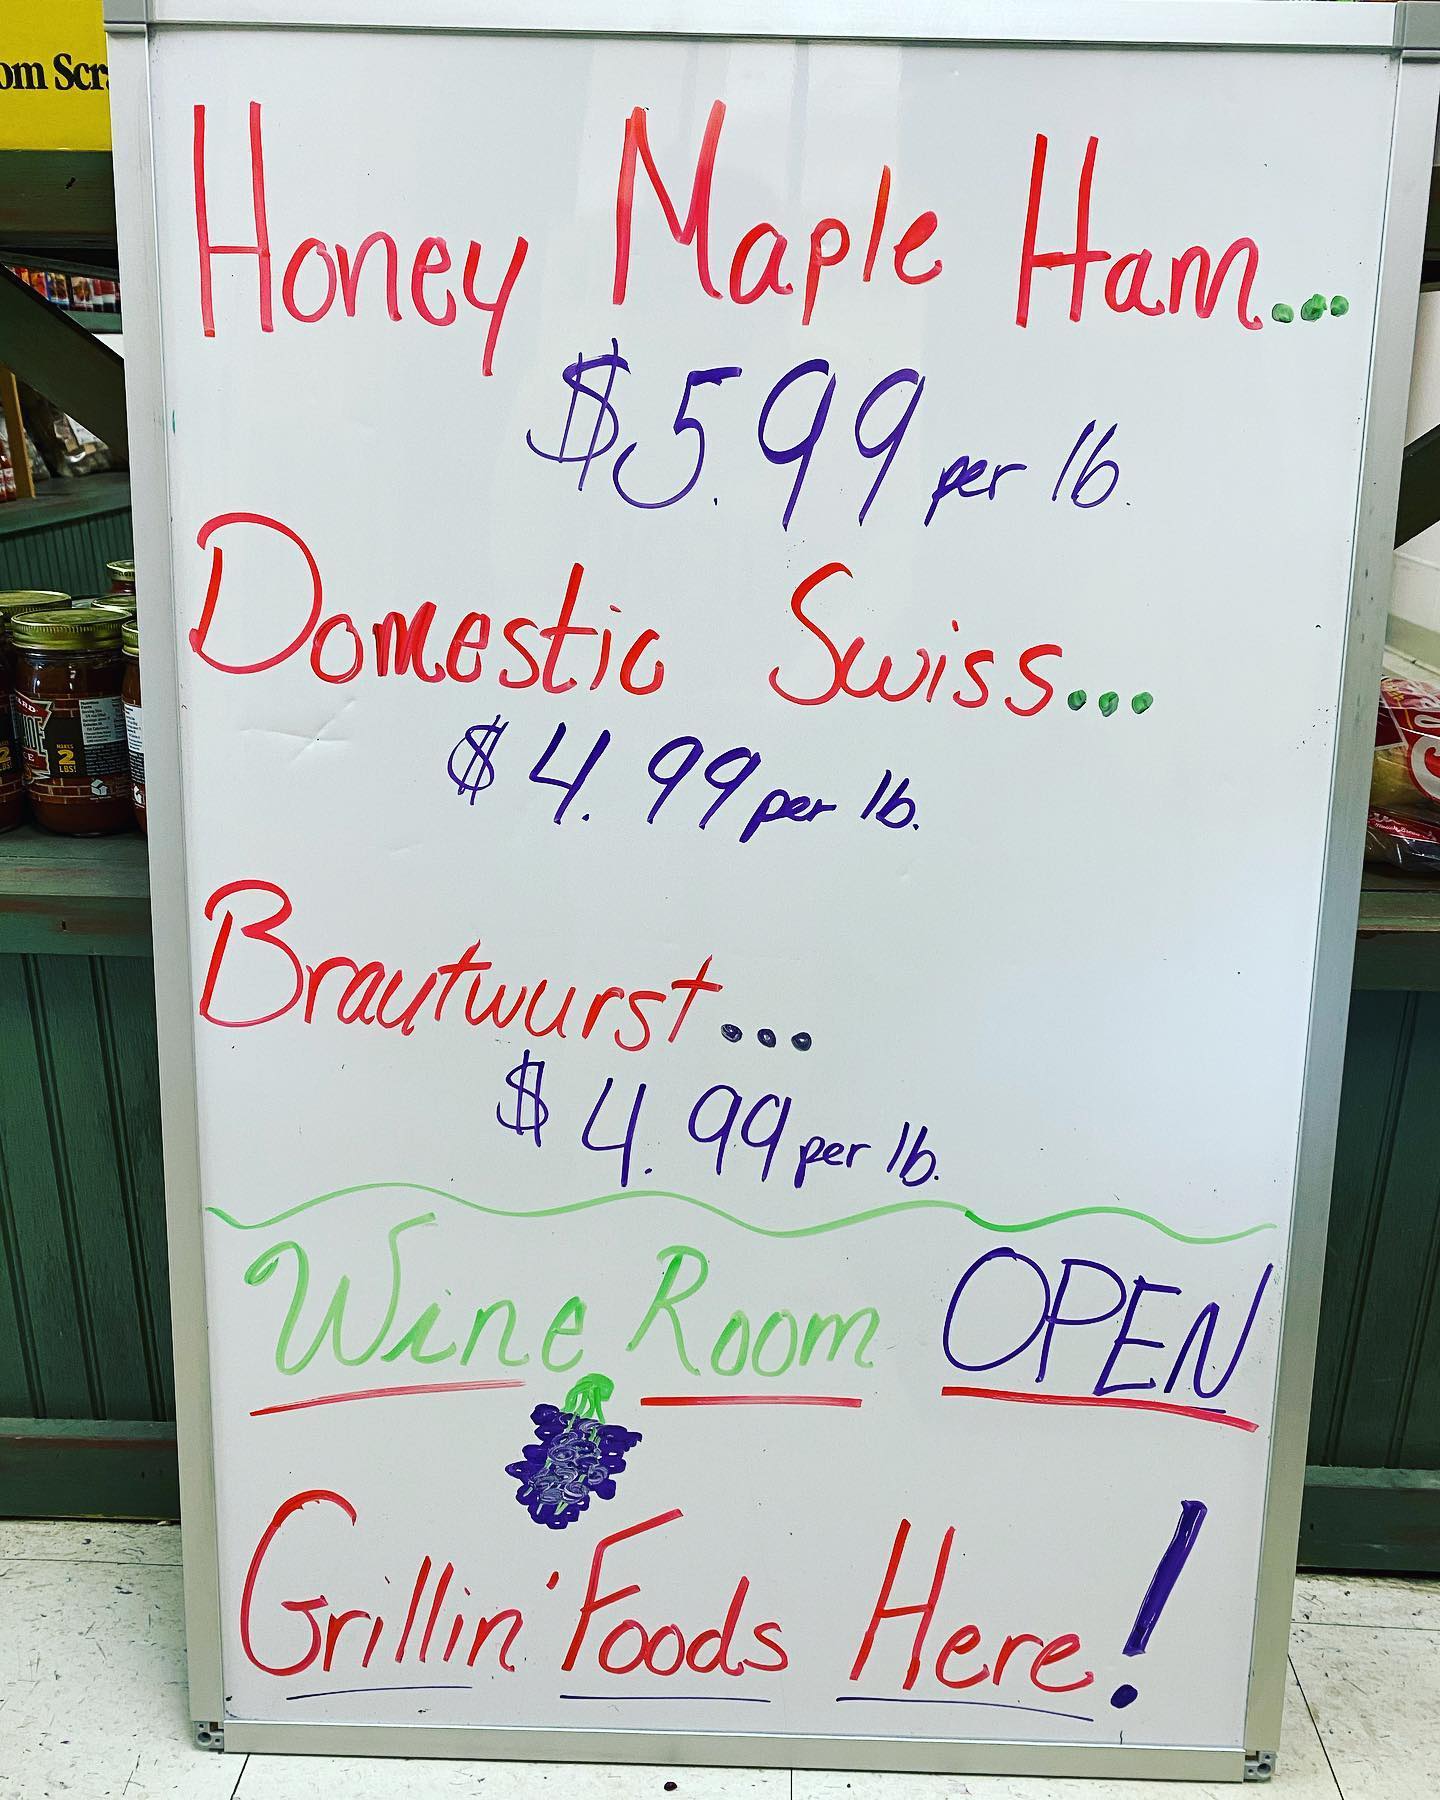 om Scr
Honey Maple Ham...
$5.99 per lb.
Domestic Swiss...
$4.99 per lb.
Brautwurst...
$4.99 per lb.
Wine Room OPEN
Grillin' Foods Here!
MAKES
2
LBS!